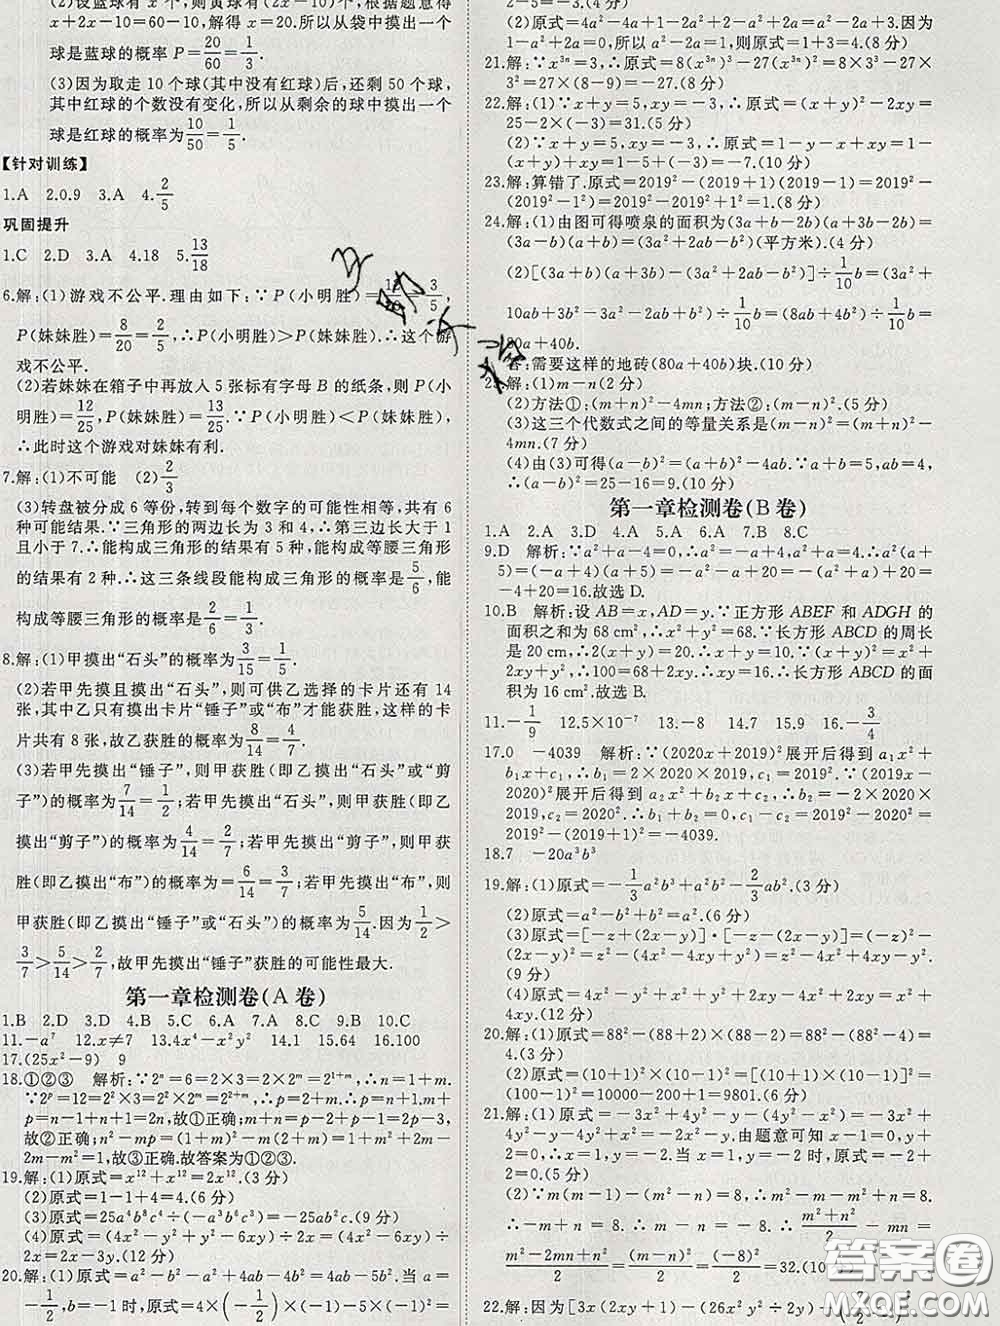 (2)设蓝球有 x 个,则黄球有(2x-10)个,根据题意得
x+2x-10=60-10,解得 x=20.所以从袋中摸出一个
球是蓝球的概率 P=20/60=1/3.
(3)因为取走 10 个球(其中没有红球)后,还剩 50 个球,
其中红球的个数没有变化,所以从剩余的球中摸出一个
球是红球的概率为10/50=1/5.
【针对训练】
1.A 2.0.9 3.A 4.2/5
巩固提升
1.C 2.D 3.A 4.18 5.13/18
6.解:(1)游戏不公平.理由如下:∵P(小明胜)=
3/5,
P(妹妹胜)=8/20=2/5,∴P(小明胜)>P(妹妹胜).∴这个游
戏不公平.
(2)若妹妹在箱子中再放入 5 张标有字母 B 的纸条,则 P(小
明胜)=12/25,P(妹妹胜)=13/25.∵P(小明胜)<P(妹妹胜).
∴此时这个游戏对妹妹有利.
7.解:(1)不可能 (2)2/3
(3)转盘被分成 6 等份,转到每个数字的可能性相等,共有 6
种可能结果.∵三角形的两边长为 3 和 4,∴第三边大于 1
且小于 7.∴能构成三角形的结果有 5 种,能构成等腰三角形
的结果有 2 种.∴这三条线段能构成三角形的概率是5/6,能
构成等腰三角形的概率是2/6=1/3.
8.解:(1)甲摸出“石头”的概率为3/15=1/5.
(2)若甲先摸且摸出“石头”,则可供乙选择的卡片还有 14
张,其中乙只有摸出卡片“锤子”或“布”才能获胜,这样的卡
片共有 8 张,故乙获胜的概率为8/14=4/7.
(3)若甲先摸出“锤子”,则甲获胜(即乙摸出“石头”或“剪
子”)的概率为7/14=1/2;若甲先摸出“石头”,则甲获胜(即乙
摸出“剪子”)的概率为4/14=2/7;若甲先摸出“剪子”,则甲获
胜(即乙摸出“布”)的概率为6/14=3/7;若甲先摸出“布”,则
甲获胜(即乙摸出“锤子”或“石头”)的概率为5/14.因为1/2>
3/7>5/14>2/7,故甲先摸出“锤子”获胜的可能性最大.
第一章检测卷(A 卷)
1.B 2.D 3.D 4.B 5.C 6.A 7.A 8.C 9.B 10.C
11.-a⁷ 12.x≠7 13.4x⁴-x²y² 14.1 15.64 16.100
17.(25x²-9) 9
18.①②③ 解析:∵2ⁿ=6=2×3=2×2ᵐ=2¹⁺ᵐ,∴n=1+m.
∵2ᵖ=12=2²×3=2²×2ᵐ=2²⁺ᵐ,∴p=2+m.∴p=n+1.m+
p=n-1+n+1=2n,故①正确;m+n=p-2+p-1=2p-3,
故②正确;n²-mp=(1+m)²-m(2+m)=1+m²+2m-
2m-m²=1,故③正确.故答案为①②③.
19.解:(1)原式=x¹²+x¹²=2x¹².(3 分)
(2)原式=1-1+4=4.(6 分)
(3)原式=25a⁴b⁸c⁴÷(-a³b⁶c³)=-25ab²c.(9 分)
(4)原式=(4x²-y²+y²-6xy)÷2x=(4x²-6xy)÷
2x=2x-3y.(12 分)
20.解:(1)原式=a²-b²-a²+4ab-4b²=4ab-5b².当 a=
-1/2,b=-1时,原式=4×(-1/2)×(-1)-5×(-1)²=
2-5=-3.(4 分)
(2)原式=4a²-4a+1-2a²+2+a²-2a=3a²-6a+3.因为
1-a²+2a=0,所以 a²-2a=1,则原式=1+3=4.(8 分)
21.解:∵x³ⁿ=2,∴原式=8(x³ⁿ)³-27(x³ⁿ)²=8×2³-27×
3²=27×(8-9)=-27.(8 分)
22.解:(1)∵x+y=5,xy=-3,∴原式=(x+y)²-2xy=
25-2×(-3)=31.(5 分)
(2)∵x+y=5,xy=-3,∴原式=1-y-x+xy=1-
(x+y)+xy=1-5+(-3)=-7.(10 分)
23.解:算错了.原式=2019²-(2019+1)(2019-1)=2019²-
(2019²-1²)=2019²-2019²+1²=1.(8 分)
24.解:(1)由图可得喷泉的面积为(3a+b-2b)(a+3b-2b)=
(3a-b)(a+b)=(3a²+2ab-b²)(平方米).(4 分)
(2)[(3a+b)(a+3b)-(3a²+2ab-b²)]÷1/10b=(3a²+
10ab+3b²-3a²-2ab+b²)÷1/10b=(8ab+4b²)÷1/10b=
80a+40b.
答:需要这样的地砖(80a+40b)块.(10 分)
25.解:(1)m-n(2 分)
(2)方法①:(m+n)²-4mn;方法②:(m-n)².(5 分)
(3)这三个代数式之间的等量关系是(m-n)²=(m+n)²-
4mn.(7 分)
(4)由(3)可得(a-b)²=(a+b)²-4ab.∵a+b=5,ab=4,
∴(a-b)²=25-16=9.(10 分)
第一章检测卷(B 卷)
1.A 2.A 3.D 4.A 5.A 6.A 7.B 8.C
9.D 解析:∵a²+a-4=0,∴a²=-a+4,a²+a=4.∴(a²-
5)=(-a+4)(a+5)=-a²-a+20=-(a²+a)+20=
-4+20=16.故选 D.
10.B 解析:设 AB=x,AD=y.∵正方形 ABEF 和 ADGH 的
面积之和为 68 cm²,∴x²+y²=68.∵长方形 ABCD 的周长
是 20 cm,∴2(x+y)=20.∴x+y=10.∵(x+y)²=x²+2xy+
y²,∴100=68+2xy.∴xy=16.∴长方形 ABCD 的面
积为 16 cm².故选 B.
11.-1/9 12.5×10⁻⁷ 13.-8 14.7 15.9 16.-3/4
17.0 -4039 解析:∵(2020x+2019)²展开后得到 a₁x²+
b₁x+c₁,∴b₁=2×2020×2019,c₁=2019².∵(2019x-
2020)²展开后得到 a₂x²+b₂x+c₂,∴b₂=-2×2020×
2019,c₂=2020².∴b₁+b₂=0,c₁-c₂=2019²-2020²=
(2019+2020)×(2019-2020)=-4039.
18.7 -20a³b³
19.解:(1)原式=-1/3a²b³+a²b²-2/3ab².(3 分)
(2)原式=a²-b²+b²=a².(6 分)
(3)原式=[-z+(2x-y)]·[-z-(2x-y)]=(-z)²-
(2x-y)²=z²-(4x²-4xy+y²)=z²-4x²+4xy-y².
(9 分)
(4)原式=4x²-4x²+y²+x²+y²+2xy-4xy=x²+2y²-2xy.(12 分)
20.解:(1)原式=88²-(88+2)×(88-2)=88²-(88²-4)=
4.(3 分)
(2)原式=(10+1)²×(10-1)²=[(10+1)×(10-1)]²=
(100-1)²=10000-200+1=9801.(6 分)
21.解:(1)原式=-3x²+4y²-y-(4y-x²)=-3x²+
4y²-y-4y+x²=-2x²+4y²-5y.由题意可知 x-1=0,y+
2=0.
(2)∵m(m-1)-(m²-n)=8,∴m²-m-m²+n=8.
∴-m+n=8.∴m-n=-8.∴(m²+n²)/2-mn=
(m²-2mn+n²)/2=(m-n)²/2=(-8)²/2=32.(10 分)
22.解:因为[3x(2xy+1)-(26x²y²÷2y)
答案圈
MXQE.COM